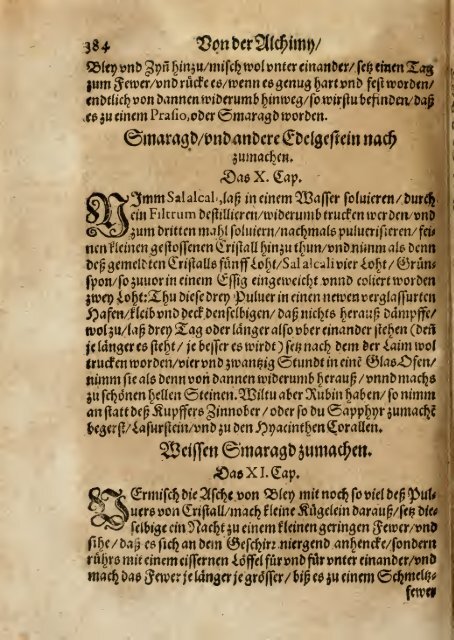 384 Von der Alchimy/
Bley vnd Zyñ hinzu/misch wol vnter einander/setz einen Tag
zum Fewer/vnd rücke es/wenn es genug hart vnd fest worden/
endtlich von dannen widerumb hinweg/so wirstu befinden/daß
es zu einem Prasio,oder Smaragd worden.
Smaragd/vnd andere Edelgestein nach
zumachen.
Das X. Cap.
NImm Sal alcali,laß in einem Wasser soluieren/durch
ein Filtrum destillieren/widerumb trucken werden/vnd
zum dritten mahl soluiern/nachmals puluerisieren/fei-
nen kleinen gestossenen Cristall hinzu thun/vnd nimm als denn
deß gemeldten Cristalls fünff Loht/Sal alcali vier Loht/Grün-
spon/so zuuor in einem Essig eingeweicht vnnd coliert worden
zwey Loht:Thu diese drey Puluer in einen newen verglassurten
Hafen/kleib vnd deck denselbigen/daß nichts herauß dämpffe/
wol zu/laß drey Tag oder länger also vber einander stehen (deñ
je länger es steht/je besser es wirdt) setz nach dem der Laim wol
trucken worden/vier vnd zwantzig Stundt in eine Glas Ofen/
nimm sie als denn von dannen widerumb herauß/vnnd machs
zu schönen hellen Steinen. Wiltu aber Rubin haben/so nimm
an statt deß Kupffers Zinnober/oder so du Sapphyr zumachē
begerst/Lasurstein/vnd zu den Hyacinthen Corallen.
Weissen Smaragd zumachen.
Das XI. Cap.
VErmisch die Asche von Bley mit noch so viel deß Pul-
uers von Cristall/mach kleine Kügelein darauß/setz die-
selbige ein Nacht zu einem kleinen geringen Fewer/vnd
sihe/daß es sich an dem Geschirr niergend anhencke/sondern
rührs mit einem eissernen Löffel für vnd für vnter einander/vnd
mach das Fewer je länger je grösser/biß es zu einem Schmeltz-
fewer